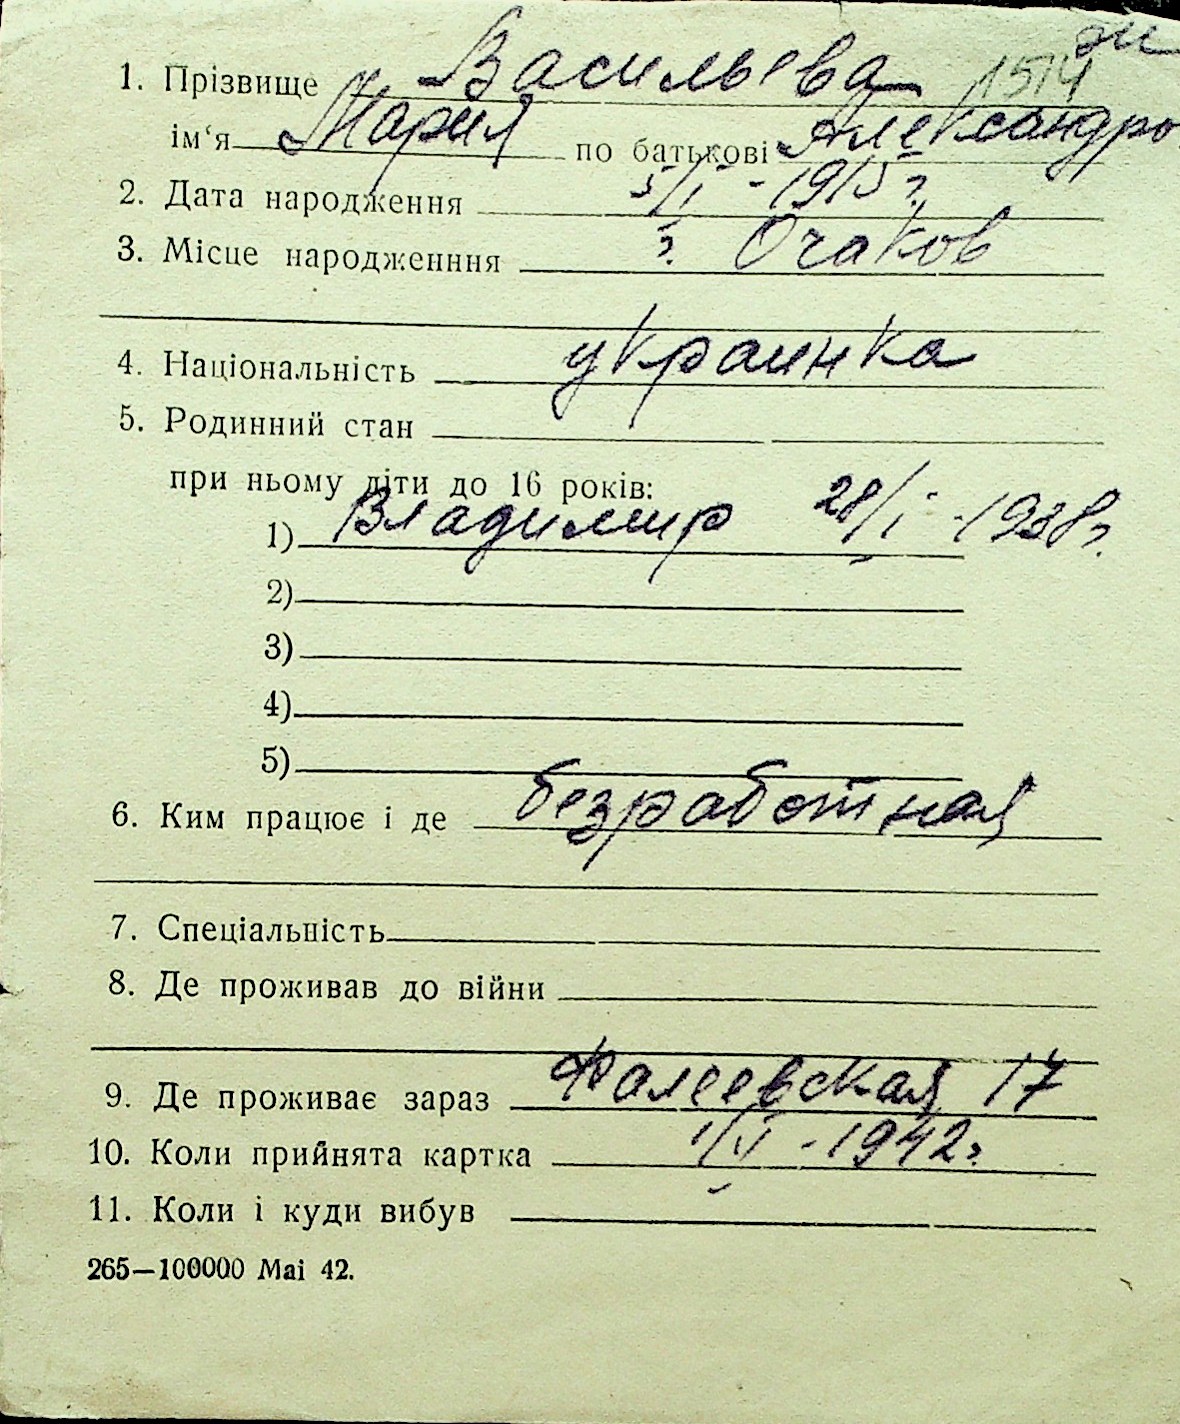 1. Прізвище Васильева 1514
ім‘я Мария по батькові Александро
2. Дата народження 5/I - 1915 г.
3. Місце народженння г. Очаков
4. Національність украинка
5. Родинний стан
при ньому діти до 16 років:
1) Владимир 28/I - 1938 г.
2)
3)
4)
5)
6. Ким працює і де безработная
7. Спеціальність
8. Де проживав до війни
9. Де проживає зараз Фалеевская 17
10. Коли прийнята картка 1/V - 1942 г.
11. Коли і куди вибув
265—100000 Mai 42.